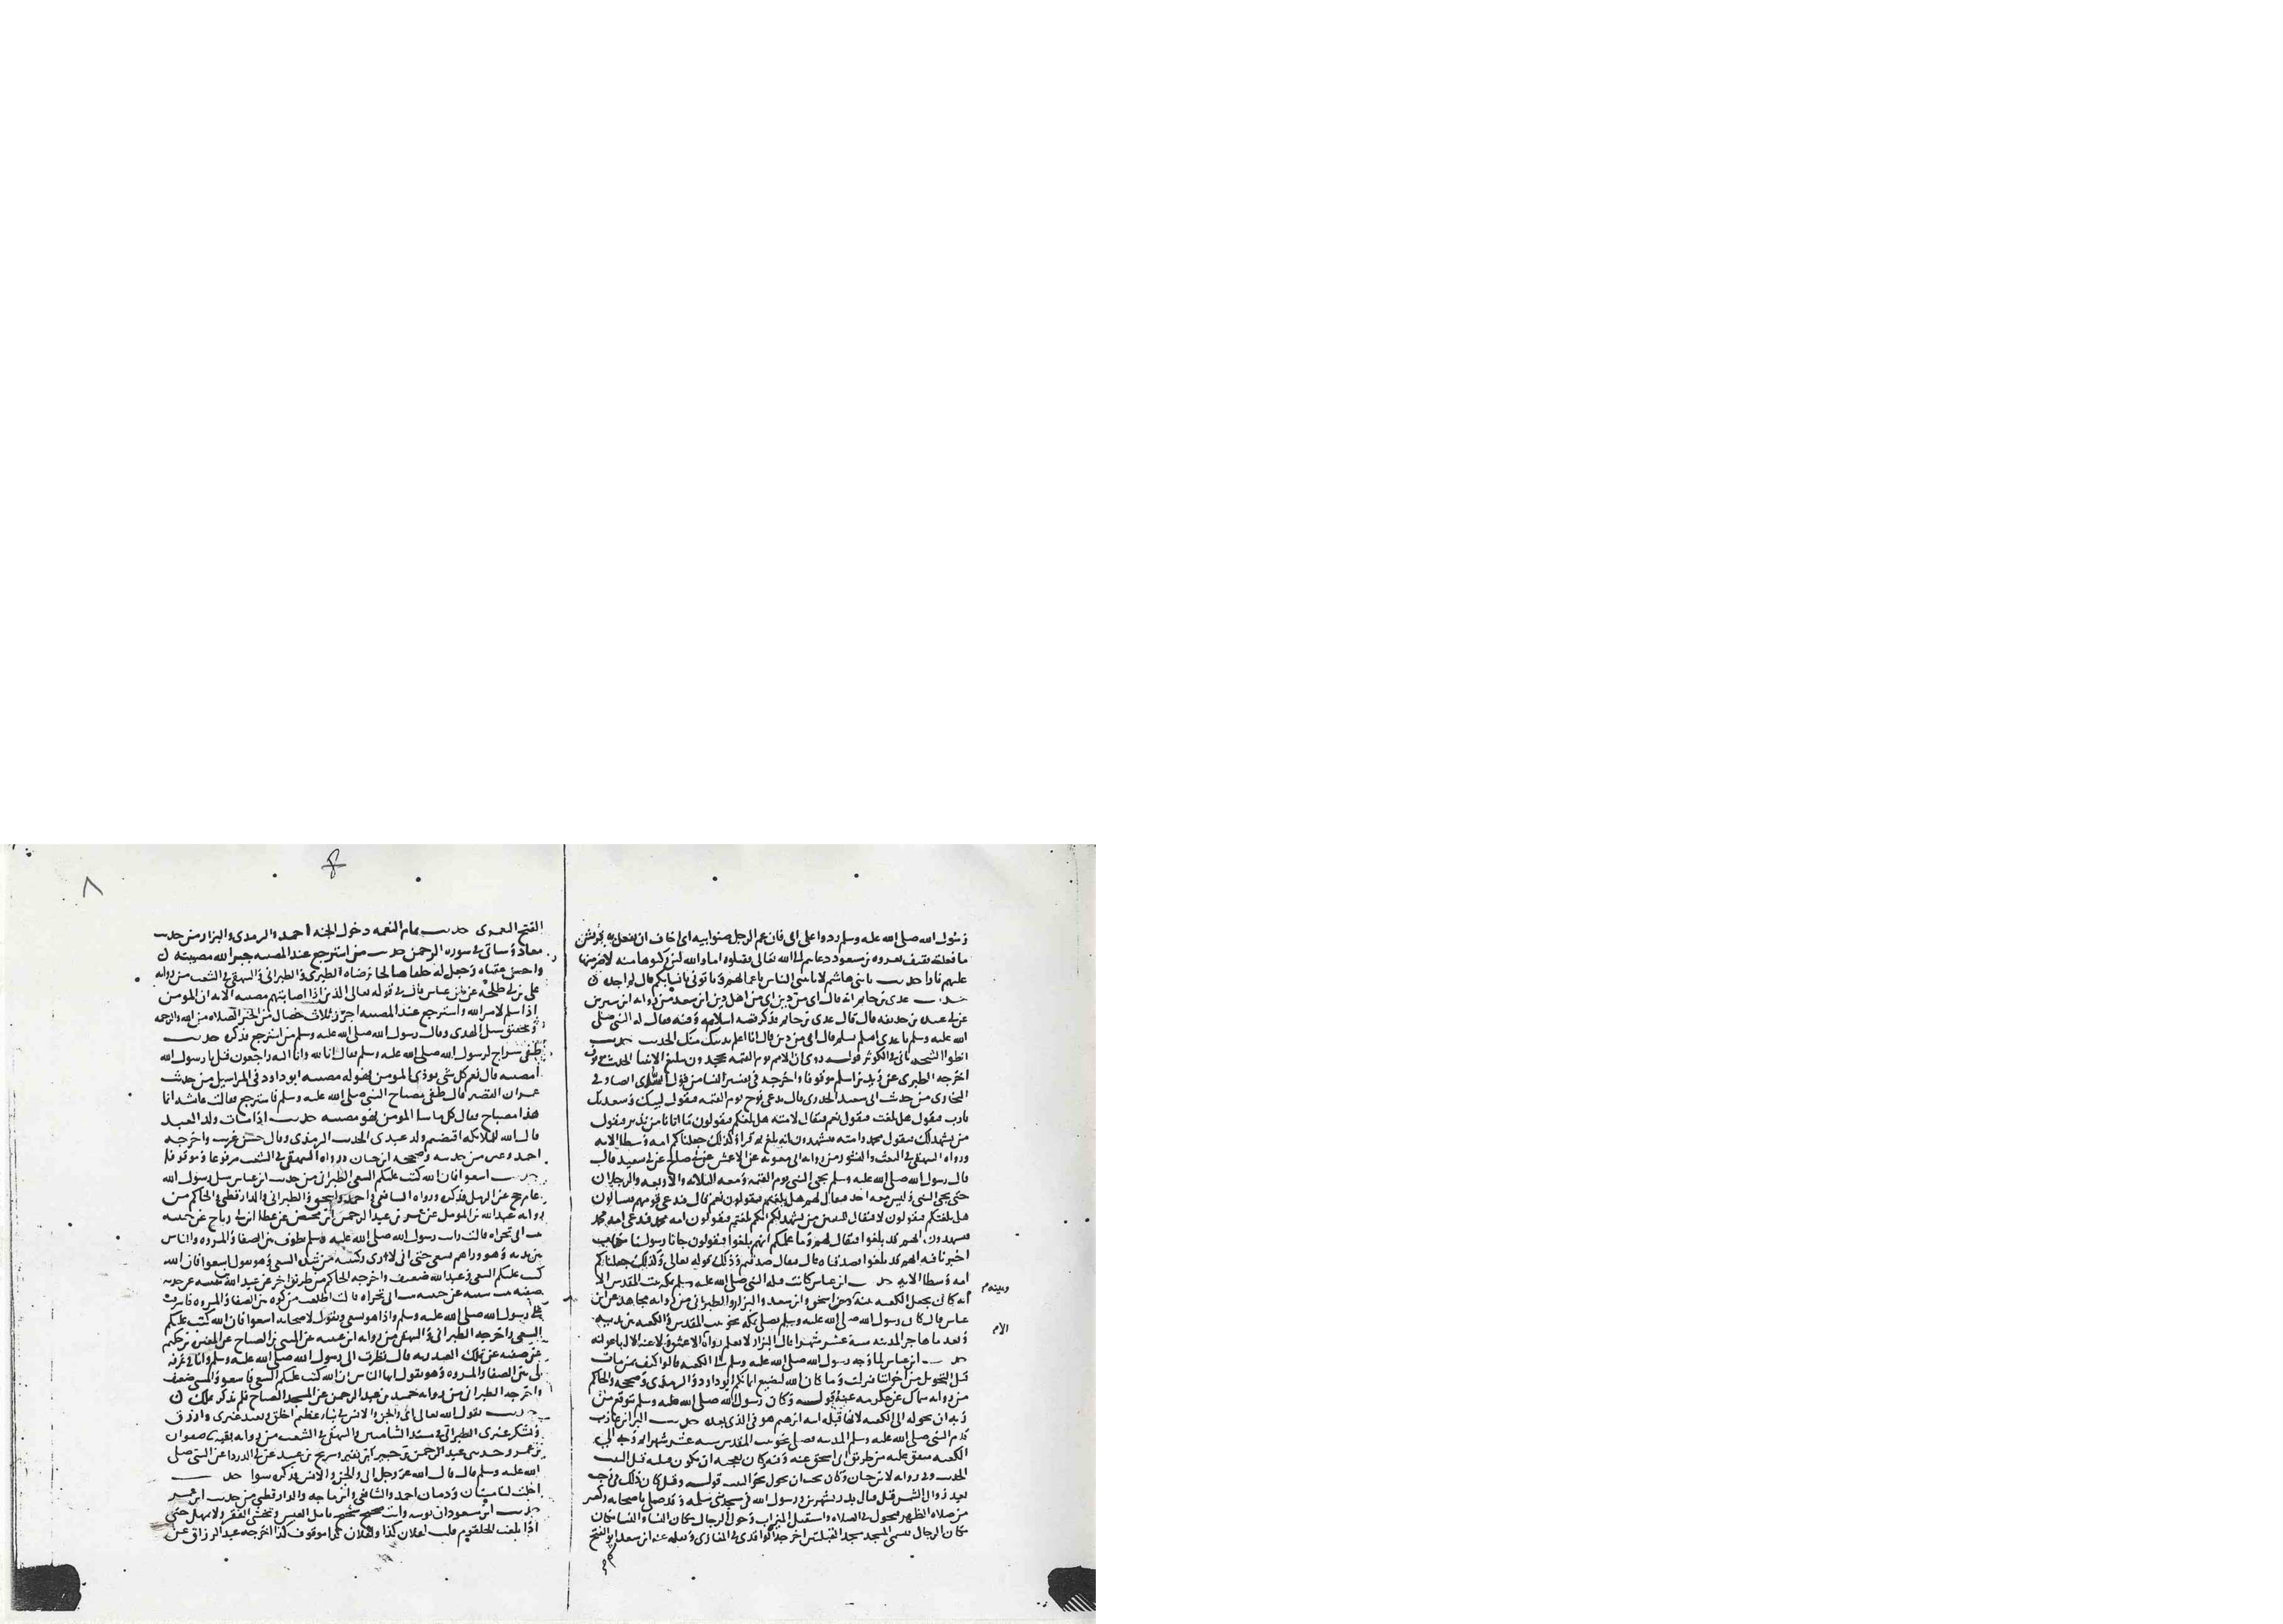 رسول الله صلى الله عليه وسلم ردوا على ابى فان عم الرجل صنو ابيه انى اخاف ان تفعل به قريش
ما فعلته ثقيف بعروه بن مسعود دعاهم الى الله تعالى فقتلوه اما والله لئن ركبوها منه لاضرمنها
عليهم نارا حديث يا بنى هاشم لا ياتينى الناس باعمالهم وتاتونى بانسابكم قال لم اجده
حديث عدى بن حاتم انه قال اى من دين اى من اهل دين ابن سعد من روايه ابن سيرين
عن ابى عبيده بن حذيفه قال قال عدى بن حاتم فذكر قصه اسلامه وفيه فقال له النبى صلى
الله عليه وسلم يا عدى اسلم تسلم قال انى من دين قال انا اعلم بدينك منك الحديث حديث
انطوا الثبجه ياتى فى الكوثر قوله روى ان الامم يوم القيمه يجحدون تبليغ الانبيا الحديث
اخرجه الطبرى عن زيد بن اسلم موقوفا واخرجه فى تفسير النسا من قول السدى ايضا وفى
البخارى من حديث ابى سعيد الخدرى قال يدعى نوح يوم القيمه فيقول لبيك وسعديك
يا رب فيقول هل بلغت فيقول نعم فيقال لامته هل بلغكم فيقولون ما اتانا من نذير فيقول
من يشهد لك فيقول محمد وامته فيشهدون انه بلغ ثم قرا وكذلك جعلناكم امه وسطا الايه
ورواه البيهقى فى البعث والنشور من روايه ابى معويه عن الاعمش عن ابى صالح عن ابى سعيد قال
قال رسول الله صلى الله عليه وسلم يجى النبى يوم القيمه ومعه الثلاثه والاربعه والرجلان
حتى يجى النبى وليس معه احد فيقال لهم هل بلغتم فيقولون نعم قال فتدعى قومهم فيسالون
هل بلغتكم فيقولون لا فيقال للنبيين من يشهد لكم انكم بلغتم فيقولون امه محمد فتدعى امه محمد
فيشهدون انهم قد بلغوا فيقال لهم وما علمكم انهم بلغوا فيقولون جانا رسولنا بكتاب
اخبرنا فيه انهم قد بلغوا فصدقناه قال فيقال صدقتم وذلك قوله تعالى وكذلك جعلناكم
امه وسطا الايه حديث ابن عباس كانت قبله النبى صلى الله عليه وسلم بمكه بيت المقدس الا
انه كان يجعل الكعبه بينه ابن اسحق وابن سعد والبزار والطبرانى من روايه مجاهد عن ابن
وبينه
عباس قال كان رسول الله صلى الله عليه وسلم يصلى بمكه نحو بيت المقدس والكعبه بين يديه
وبعد ما هاجر المدينه سته عشر شهرا قال البزار لا نعلم رواه الا الاعمش ولا عنه الا ابا عوانه
حديث ابن عباس لما وجه رسول الله صلى الله عليه وسلم الى الكعبه قالوا كيف بمن مات
قبل التحويل من اخواننا فنزلت وما كان الله ليضيع ايمانكم ابو داود والترمذى وصححه والحاكم
من روايه سماك عن عكرمه عنه قوله وكان رسول الله صلى الله عليه وسلم يتوقع من
ربه ان يحوله الى الكعبه لانها قبله ابيه ابرهيم هو فى الذى بعده حديث البرا بن عازب
قدم النبى صلى الله عليه وسلم المدينه فصلى نحو بيت المقدس سته عشر شهرا ثم وجه الى
الكعبه متفق عليه من طريق ابى اسحق عنه وفيه وكان يعجبه ان تكون قبلته قبل البيت
الحديث وفى روايه لابن حبان وكان يحب ان يحول نحو البيت قوله وقيل كان ذلك فى رجب
بعد زوال الشمس قبل قتال بدر بشهرين ورسول الله فى مسجد بنى سلمه وقد صلى باصحابه ركعتين
من صلاه الظهر فتحول فى الصلاه واستقبل الميزاب وحول الرجال مكان النسا والنسا مكان
مكان الرجال فسمى المسجد مسجد القبلتين اخرجه الواقدى فى المغازى ونقله عنه ابن سعد ابو الفتح
٨
الفتح اليعمرى حديث تمام النعمه دخول الجنه احمد والترمذى والبزار من حديث
معاذ وسياتى فى سوره الرحمن حديث من استرجع عند المصيبه جبر الله مصيبته
واحسن عقباه وجعل له خلفا صالحا يرضاه الطبرى والطبرانى والبيهقى فى الشعب من روايه
على بن ابى طلحه عن ابن عباس قال فى قوله تعالى الذين اذا اصابتهم مصيبه الايه ان المومن
اذا سلم لامر الله واسترجع عند المصيبه احرز ثلاث خصال من الخير الصلاه من الله والرحمه
وتحقيق سبل الهدى وقال رسول الله صلى الله عليه وسلم من استرجع فذكره حديث
طفى سراج لرسول الله صلى الله عليه وسلم فقال انا لله وانا اليه راجعون فقيل يا رسول الله
امصيبه قال نعم كل شى يوذى المومن فهو له مصيبه ابو داود فى المراسيل من حديث
عمران القصير قال طفى مصباح النبى صلى الله عليه وسلم فاسترجع فقالت عائشه انما
هذا مصباح فقال كل ما سا المومن فهو مصيبه حديث اذا مات ولد العبد
قال الله لملائكته اقبضتم ولد عبدى الحديث الترمذى وقال حسن غريب واخرجه
احمد وغيره من حديثه وصححه ابن حبان ورواه البيهقى فى الشعب مرفوعا وموقوفا
حديث اسعوا فان الله كتب عليكم السعى الطبرانى من حديث ابن عباس سئل رسول الله
عام حج عن الرمل فذكره ورواه الشافعى واحمد واسحق والطبرانى والدارقطنى والحاكم من
روايه عبد الله بن المومل عن عمر بن عبد الرحمن ابن محيصن عن عطا ابن ابى رباح عن حبيبه
بنت ابى تجراه قالت رايت رسول الله صلى الله عليه وسلم يطوف بين الصفا والمروه والناس
بين يديه وهو وراهم يسعى حتى انى لارى ركبتيه من شده السعى وهو يقول اسعوا فان الله
كتب عليكم السعى وعبد الله ضعيف واخرجه الحاكم من طريق اخر عن
صفيه بنت شيبه عن حبيبه بنت ابى تجراه قالت اطلعت من كوه بين الصفا والمروه فاشرفت
على رسول الله صلى الله عليه وسلم واذا هو يسعى ويقول لاصحابه اسعوا فان الله كتب عليكم
السعى واخرجه الطبرانى والبيهقى من روايه ابن عيينه عن المثنى بن الصباح عن المغيره بن حكيم
عن صفيه عن تملك العبدريه قالت نظرت الى رسول الله صلى الله عليه وسلم وانا فى غرفه
لى بين الصفا والمروه وهو يقول ايها الناس ان الله كتب عليكم السعى فاسعوا والمثنى ضعيف
واخرجه الطبرانى من روايه حميد بن عبد الرحمن عن المثنى بن الصباح فلم يذكر تملك
حديث يقول الله تعالى انى والجن والانس فى نبا عظيم اخلق ويعبد غيرى وارزق
ويشكر غيرى الطبرانى فى مسند الشاميين والبيهقى فى الشعب من روايه بقيه صفوان
بن عمرو حدثنى عبد الرحمن بن جبير ابن نفير وشريح بن عبيد عن ابى الدردا عن النبى صلى
الله عليه وسلم قال قال الله عز وجل انى والجن والانس فذكره سوا حديث
احلت لنا ميتتان ودمان احمد والشافعى وابن ماجه والدارقطنى من حديث ابن عمر
حديث ابن مسعود ان توتيه وانت صحيح شحيح تامل العيش وتخشى الفقر ولا تمهل حتى
اذا بلغت الحلقوم قلت لفلان كذا ولفلان كذا موقوف كذا اخرجه عبد الرزاق عن